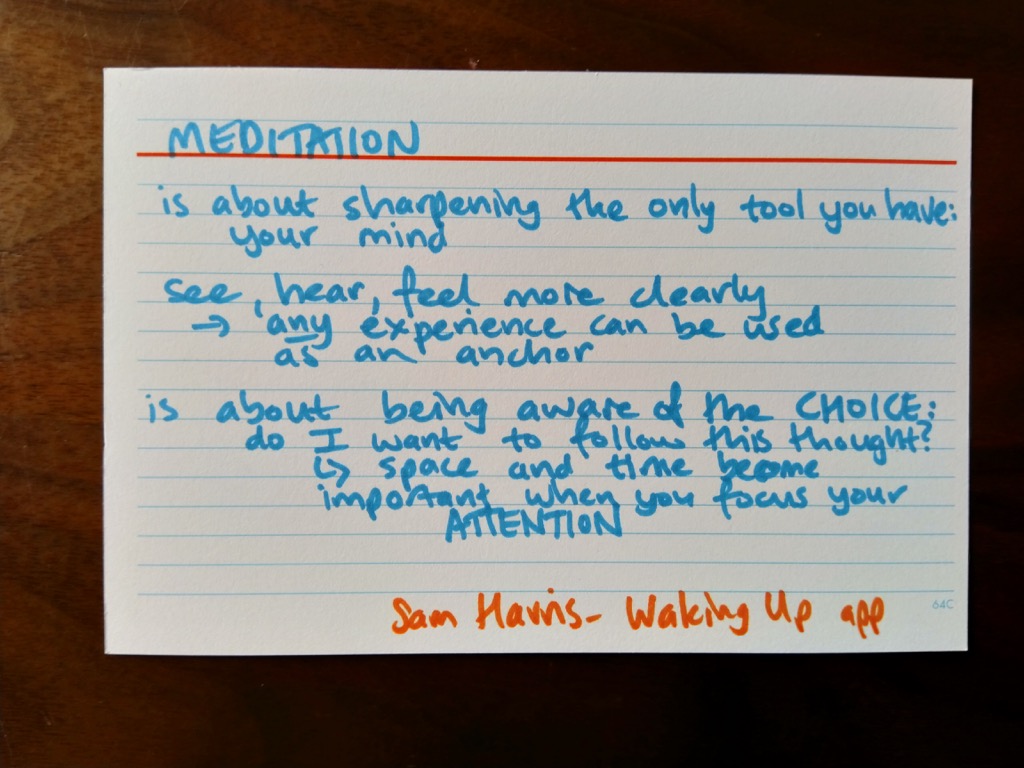 MEDITATION
is about sharpening the only tool you have:
your mind
see, hear, feel more clearly
→ any experience can be used
as an anchor
is about being aware of the CHOICE:
do I want to follow this thought?
↳ space and time become
important when you focus your
ATTENTION
Sam Harris - Waking Up app
64C